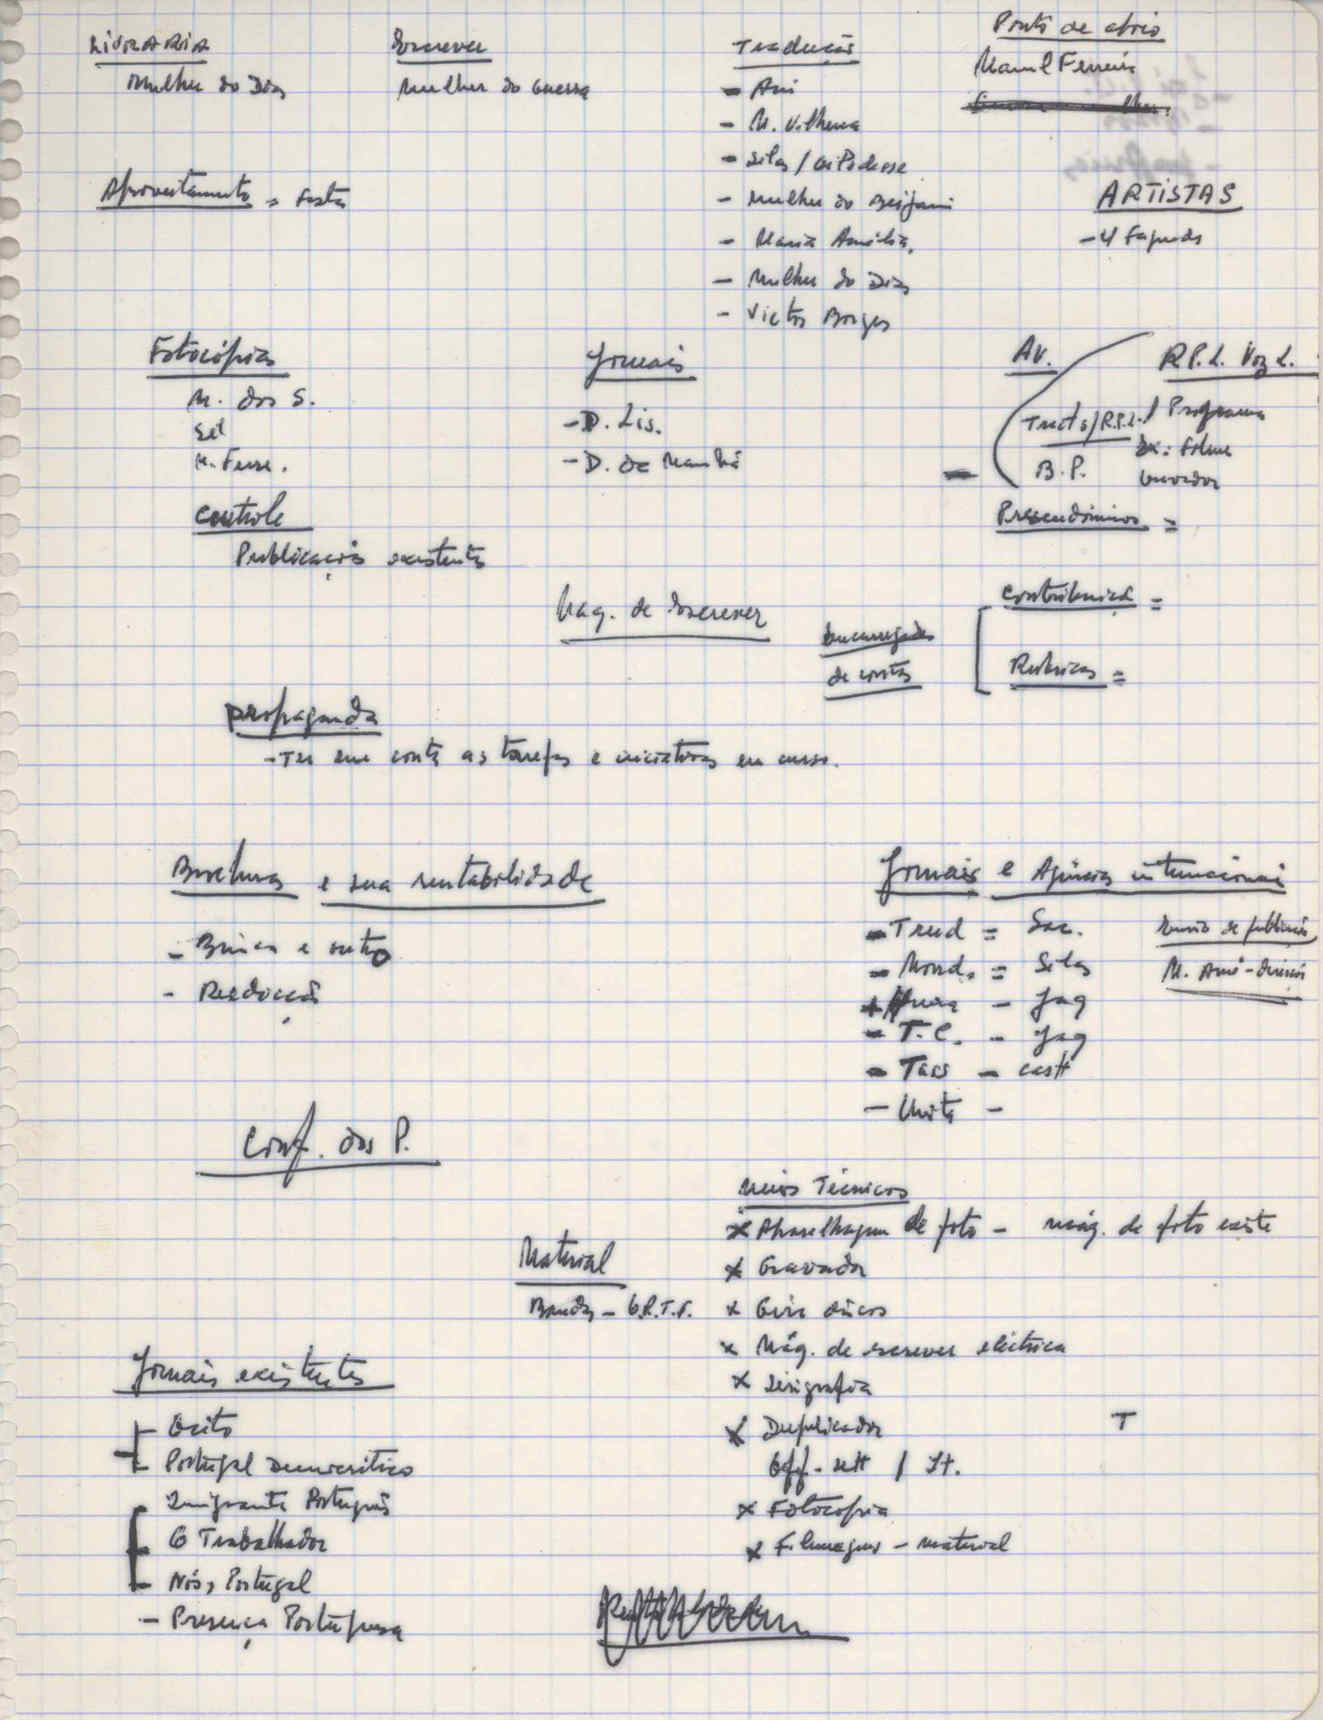 Livraria
Mulher do Dias
Escrever
Mulher do Guerra
Tradução
- Ani
- M. Vilhena
- Silas /
- Mulher do Benjamim
- Maria Amélia
- Mulher do Dias
- Victor Borges
Ponto de apoio
Manuel Ferreira
ARTISTAS
- 4 Fagundes
Aproveitamento = festa
Fotocópias
M. dos S.
Sel
M. Ferr.
Jornais
- D. Lis.
- D. da Manhã
Av.
R.P.L. Voz L.
Tracts/R.P.L. / Programa
Ex: Filme
B.P.
Gravador
Pseudónimos =
Controle
Publicação existentes
Maq. de Escrever
Encarregados
de contas
Contribuição =
Rubricas =
Propaganda
- Ter em conta as tarefas e iniciativas em curso.
Brochuras e sua rentabilidade
- e outro
- Redacção
Jornais e Agências internacionais
- Trud = Sac.
- Mond. = Silas
- Jag
- T.C. - Jag
- Tass - cast
- Unità -
Envio de publicações
M. Amé - direcção
Conf. dos P.
Material
Bandas - O.R.T.F.
Meios Técnicos
x Aparelhagem de foto - máq. de foto existe
x Gravador
x Gira discos
x Máq. de escrever eléctrica
x Serigrafia
x Duplicador
T
Off-sett / St.
x Fotocópia
x Filmagens - material
Jornais existentes
- Grito
- Portugal Democrático
- Emigrante Português
- O Trabalhador
- Nós, Portugal
- Presença Portuguesa